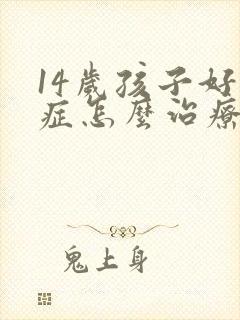 14歲孩子好
症怎麼治療
鬼上身